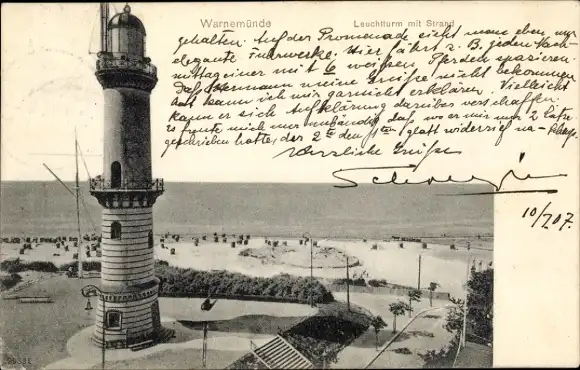 Warnemünde
Leuchtturm mit Strand
gehalten. Auf der Promenade sieht man eben nur
elegante Fuhrwerke. Hier fährt z. B. jeden Nach-
mittag einer mit 6 weißen Pferden spazieren.
Daß meine Grüße nicht bekommen
hat kann ich mir garnicht erklären. Vielleicht
kann er sich Aufklärung darüber verschaffen.
es freute mich nur daß er mir nur 2
geschrieben hatte, der 2te den 1ten glatt
Herzliche Grüße
10/7 07.